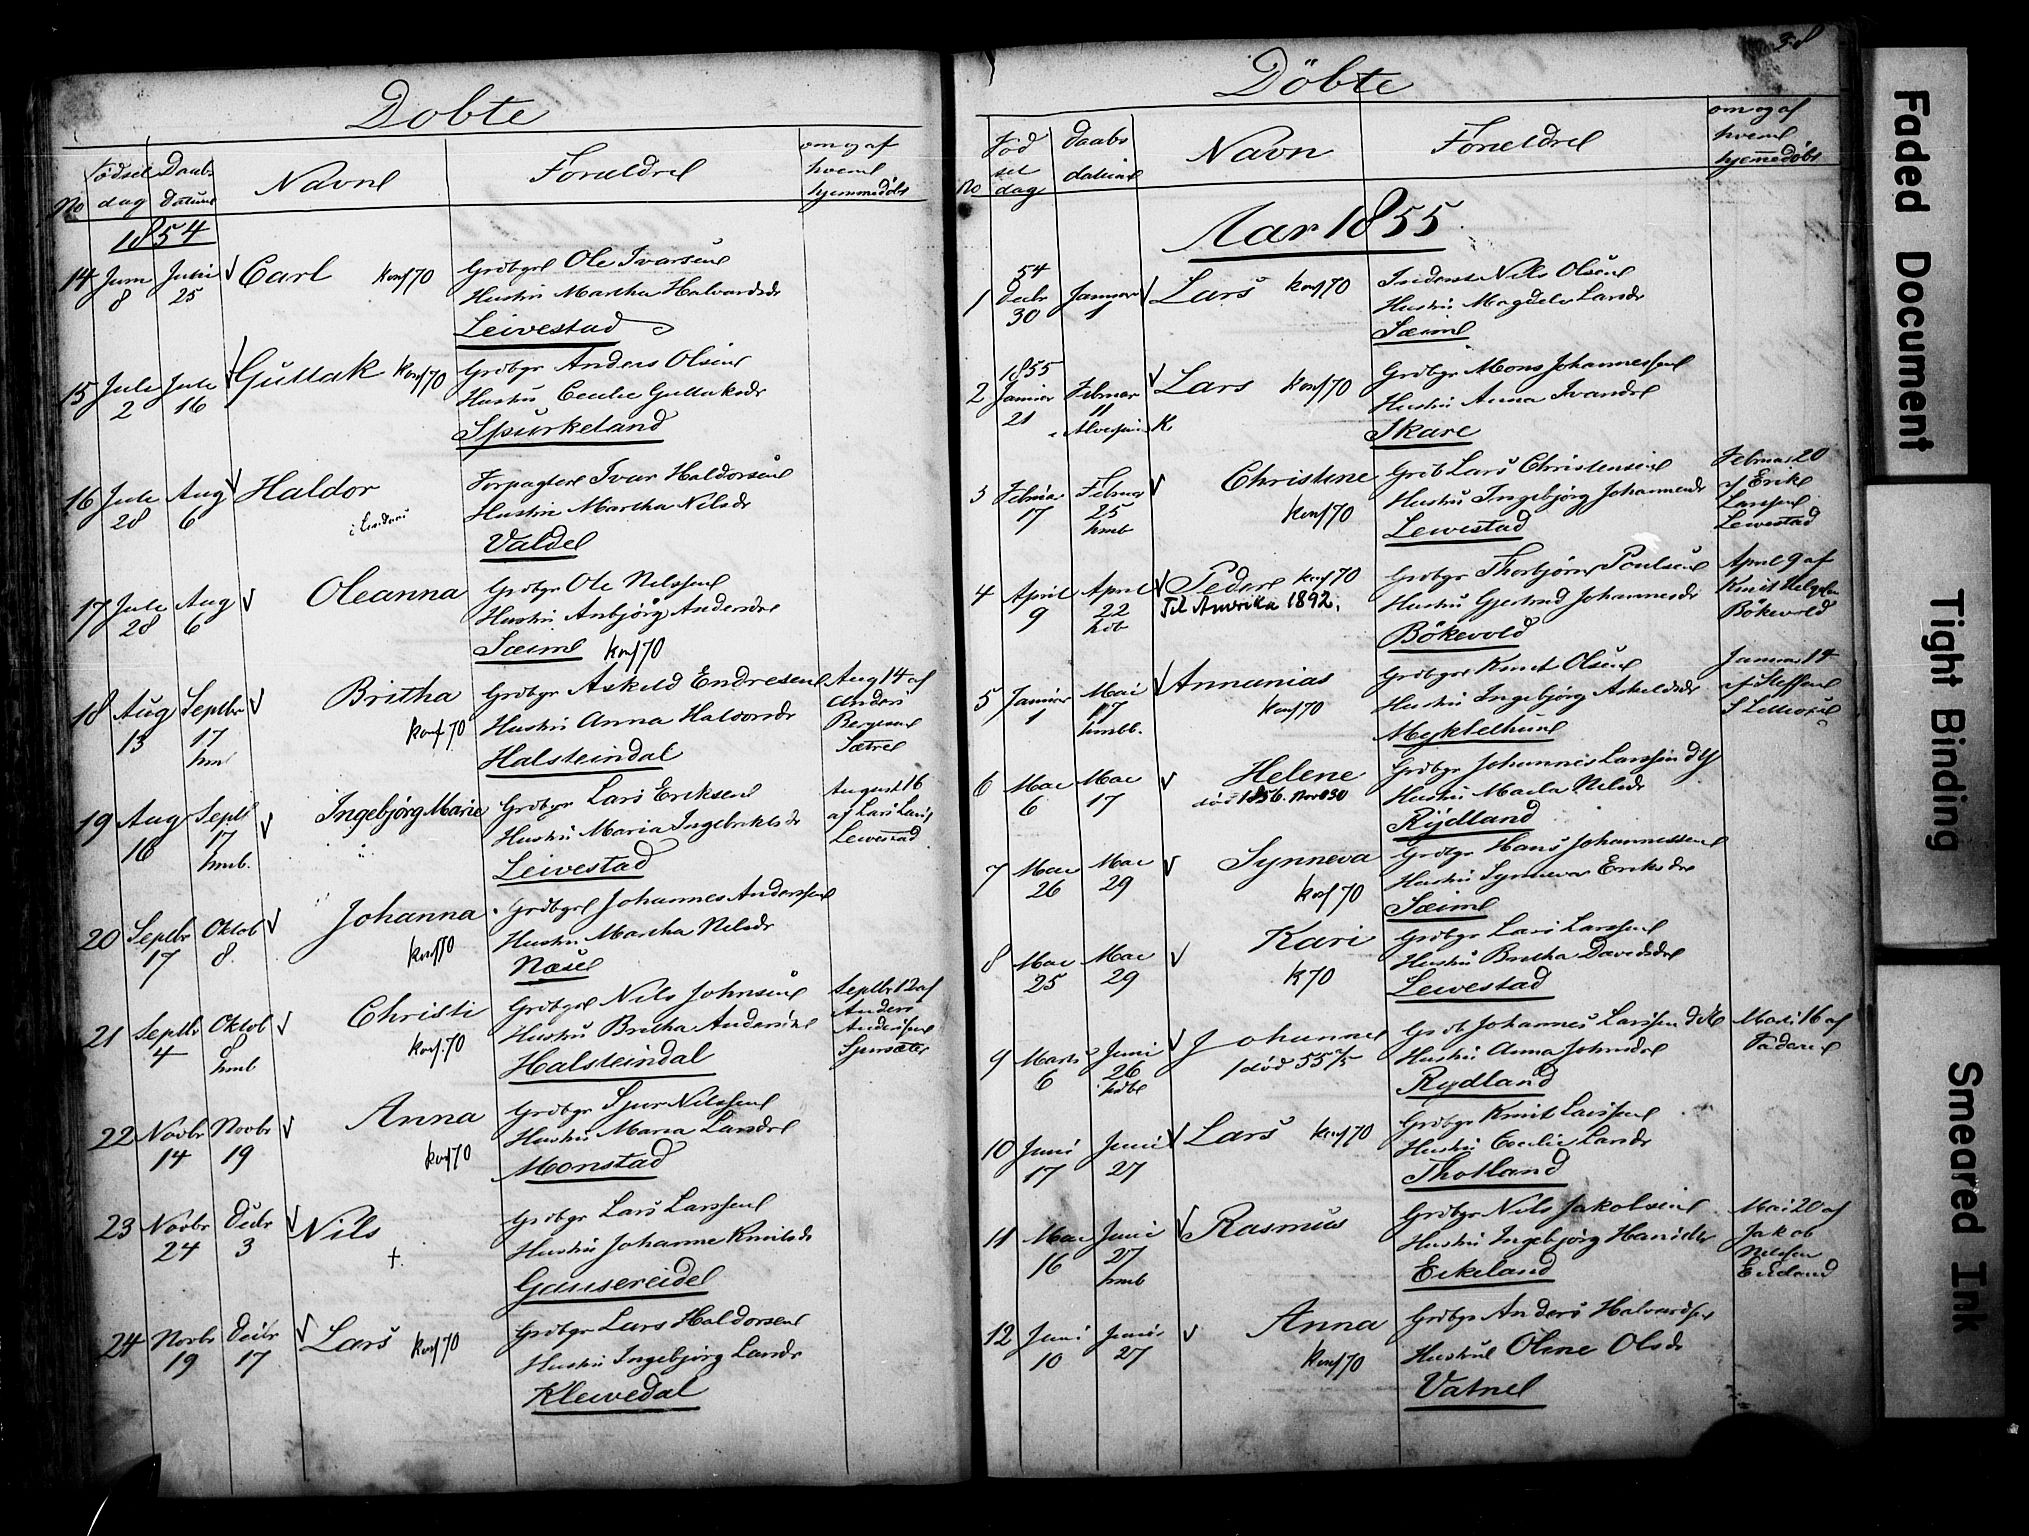 Dobte
No
Fødsel dag
Daabs Datum
Navne
Forældre
om og af hvem hjemmedøbt
1854
14 Juni 8 Juni 25 Carl konf 70
Grdbgr Ole Ivarsen
Hustru Martha Halvardsdr
Leivestad
15 Jule 2 Jule 16 Guttak konf 70
Grdbgr Anders Olsen
Hustru Cecilie Guttaksdr
Spurkeland
16 Jule 28 Aug 6 Haldor
Forpagter Ivar Haldorsen
Hustru Martha Nilsdr
Valdel
17 Jule 28 Aug 6 Oleanna
Grdbgr Ole Nilssen
Hustru Anbjørg Andersdr
Sæim konf 70
18 Aug 13 Septbr 17 hm Britha konf 70
Grdbgr Askeld Endresen
Hustru Anna Halvorsdr
Halsteindal
Aug 14 af
Anders
Bergesen
Sætre
19 Aug 16 Septb 17 hmb. Ingebjørg Marie
Grdbgr Lars Eriksen
Hustru Maria Ingebriktsdr
Leivestad
August 16
af Lars Lars
Leivestad
20 Septbr 17 Oktob 8. Johanna konf 70
Grdbgr Johannes Anderssen
Hustru Martha Nelsdr
Næse
21 Septbr 4 Oktob 8 hmb Christi konf. 70
Grdbgr Nils Johnsen
Hustru Britha Andersdr
Halsteindal
Septbr 12 af
Anders
Anderssen
Spursæter
22 Novbr 14 Novbr 19 Anna konf 70
Grdbgr Sjur Nilssen
Hustru Maria Larsdr
Monstad
23 Novbr 24 Decbr 3 Nils +
Grdbgr Lars Larssen
Hustru Johanne Knutsdr
Gaustereidel
24 Novbr 19 Decbr 17 Lars konf 70
Grdbgr Lars Haldorsen
Hustru Ingebjørg Larsdr
Kleivedal
38
Döbte
No
Fød sel dag
Daabs datum
Navn
Forældre
om og af hvem hjemmedøbt
Aar 1855
1 54 Decbr 30 Januar 1 Lars konf 70
Nils Olsen
Hustru Magdela Larsdr
Sæim
2 1855 Januar 21 Februar 11 Lars konf 70
Grdbgr Mons Johannessen
Hustru Anna Ivarsdr
Skare
3 Februar 17 Februar 25 hmb Christine konf 70
Grdb Lars Christensen
Hustru Ingebjørg Johannesdr
Leivestad
Februar 20
af Erik
Larssen
Leivestad
4 April 9 April 22 hdb Peder konf 70
Til Amerika 1892.
Grdbgr Thorbjørn Poulsen
Hustru Gjertrud Johannesdr
Bökevold
April 9 af
Knut Helgesen
Bökevold
5 Januar 1 Mai 17 hmbb. Annanias konf 70
Grdbgr Knut Olsen
Hustru Ingebjørg Askeldsdr
Myklethun
Januar 14
af Steffen
6 Mai 6 Mai 17 Helene
död 1856. Novb 30
Grdbgr Johannes Larssen d y
Hustru Marta Nelsdr
Rydland
7 Mai 26 Mai 29 Synneva konf 70
Grdbgr Hans Johannessen
Hustru Synneva Eriksdr
Sæim
8 Mai 25 Mai 29 Kari k 70
Grdbgr Lars Larssen
Hustru Britha Davidsdr
Leivestad
9 Marts 6 Juni 26 hdb Johanne
død 55
Grdb Johannes Larssen d Æ
Hustru Anna Johnsdr
Rydland
Marts 16 af
Faderen
10 Juni 17 Juni 27 Lars konf 70
Grdbgr Knut Larssen
Hustru Cecilie Larsdr
Thotland
11 Mai 16 Juni 27 hmb Rasmus
Grdbgr Nils Jakobsen
Hustru Ingebjørg Hansdtr
Eikeland
Mai 20 af
Jakob
Nelssen
12 Juni 10 Juni 27 Anna konf 70
Grdbgr Anders Halvardsen
Hustru Oline Olsdr
Vatnel
Faded Document
Tight Binding
Smeared Ink